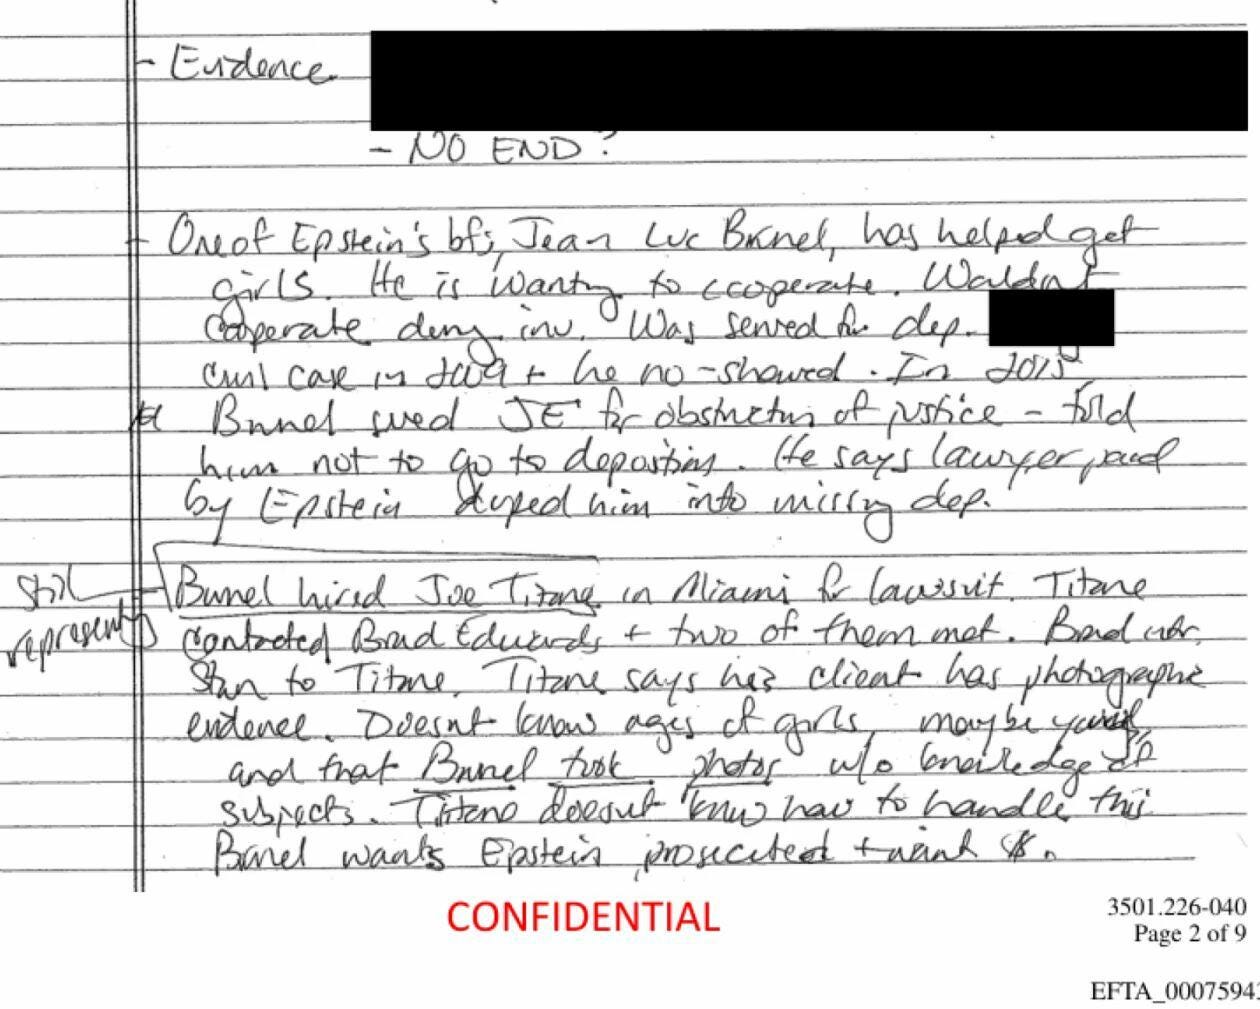 - Evidence
- NO END?
- One of Epstein's bfs, Jean Luc Brunel, has helped get
girls. He is wanting to cooperate. Wouldnt
cooperate during inv. Was served for dep.
civil case in 2009 + he no-showed. In 2015
Brunel sued JE for obstruction of justice - told
him not to go to deposition. He says lawyer paid
by Epstein duped him into missing dep.
still
represents
- Brunel hired Joe Titone in Miami for lawsuit. Titone
contacted Brad Edwards + two of them met. Brad
Stan to Titone. Titone says his client has photographic
evidence. Doesnt know ages of girls, maybe
and that Brunel took photos w/o knowledge of
subjects. Titone doesnt know how to handle this
Brunel wants Epstein prosecuted + want $.
CONFIDENTIAL
3501.226-040
Page 2 of 9